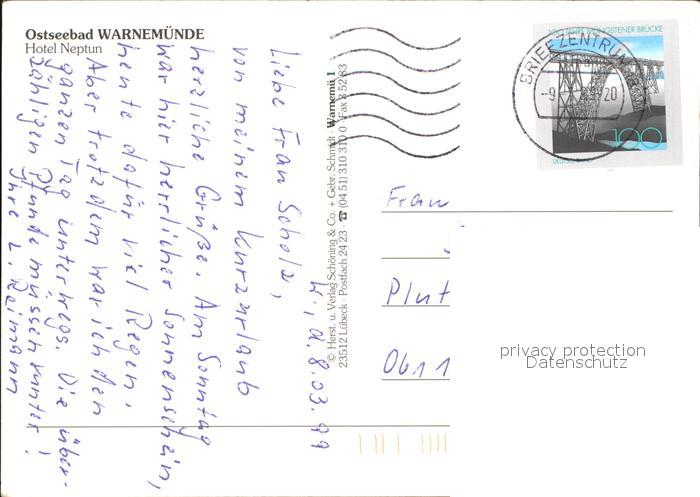 Ostseebad WARNEMÜNDE
Hotel Neptun
W, d. 8.03.99
Liebe Frau Scholz,
von meinem Kurzurlaub
herzliche Grüße. Am Sonntag
war hier herrlicher Sonnenschein,
heute dafür viel Regen.
Aber trotzdem war ich den
ganzen Tag unterwegs. Die über-
zähligen Pfunde müssen runter!
Ihre L. Reimann
© Herst. u. Verlag Schöning & Co. + Gebr. Schmidt · Warnemü 1
23512 Lübeck · Postfach 24 23 · ☎ (04 51) 310 310 0 · Fax 3 52 83
BRÜCKE
BRIEFZENTRUM
20
100
Frau
Plut
0611
privacy protection
Datenschutz